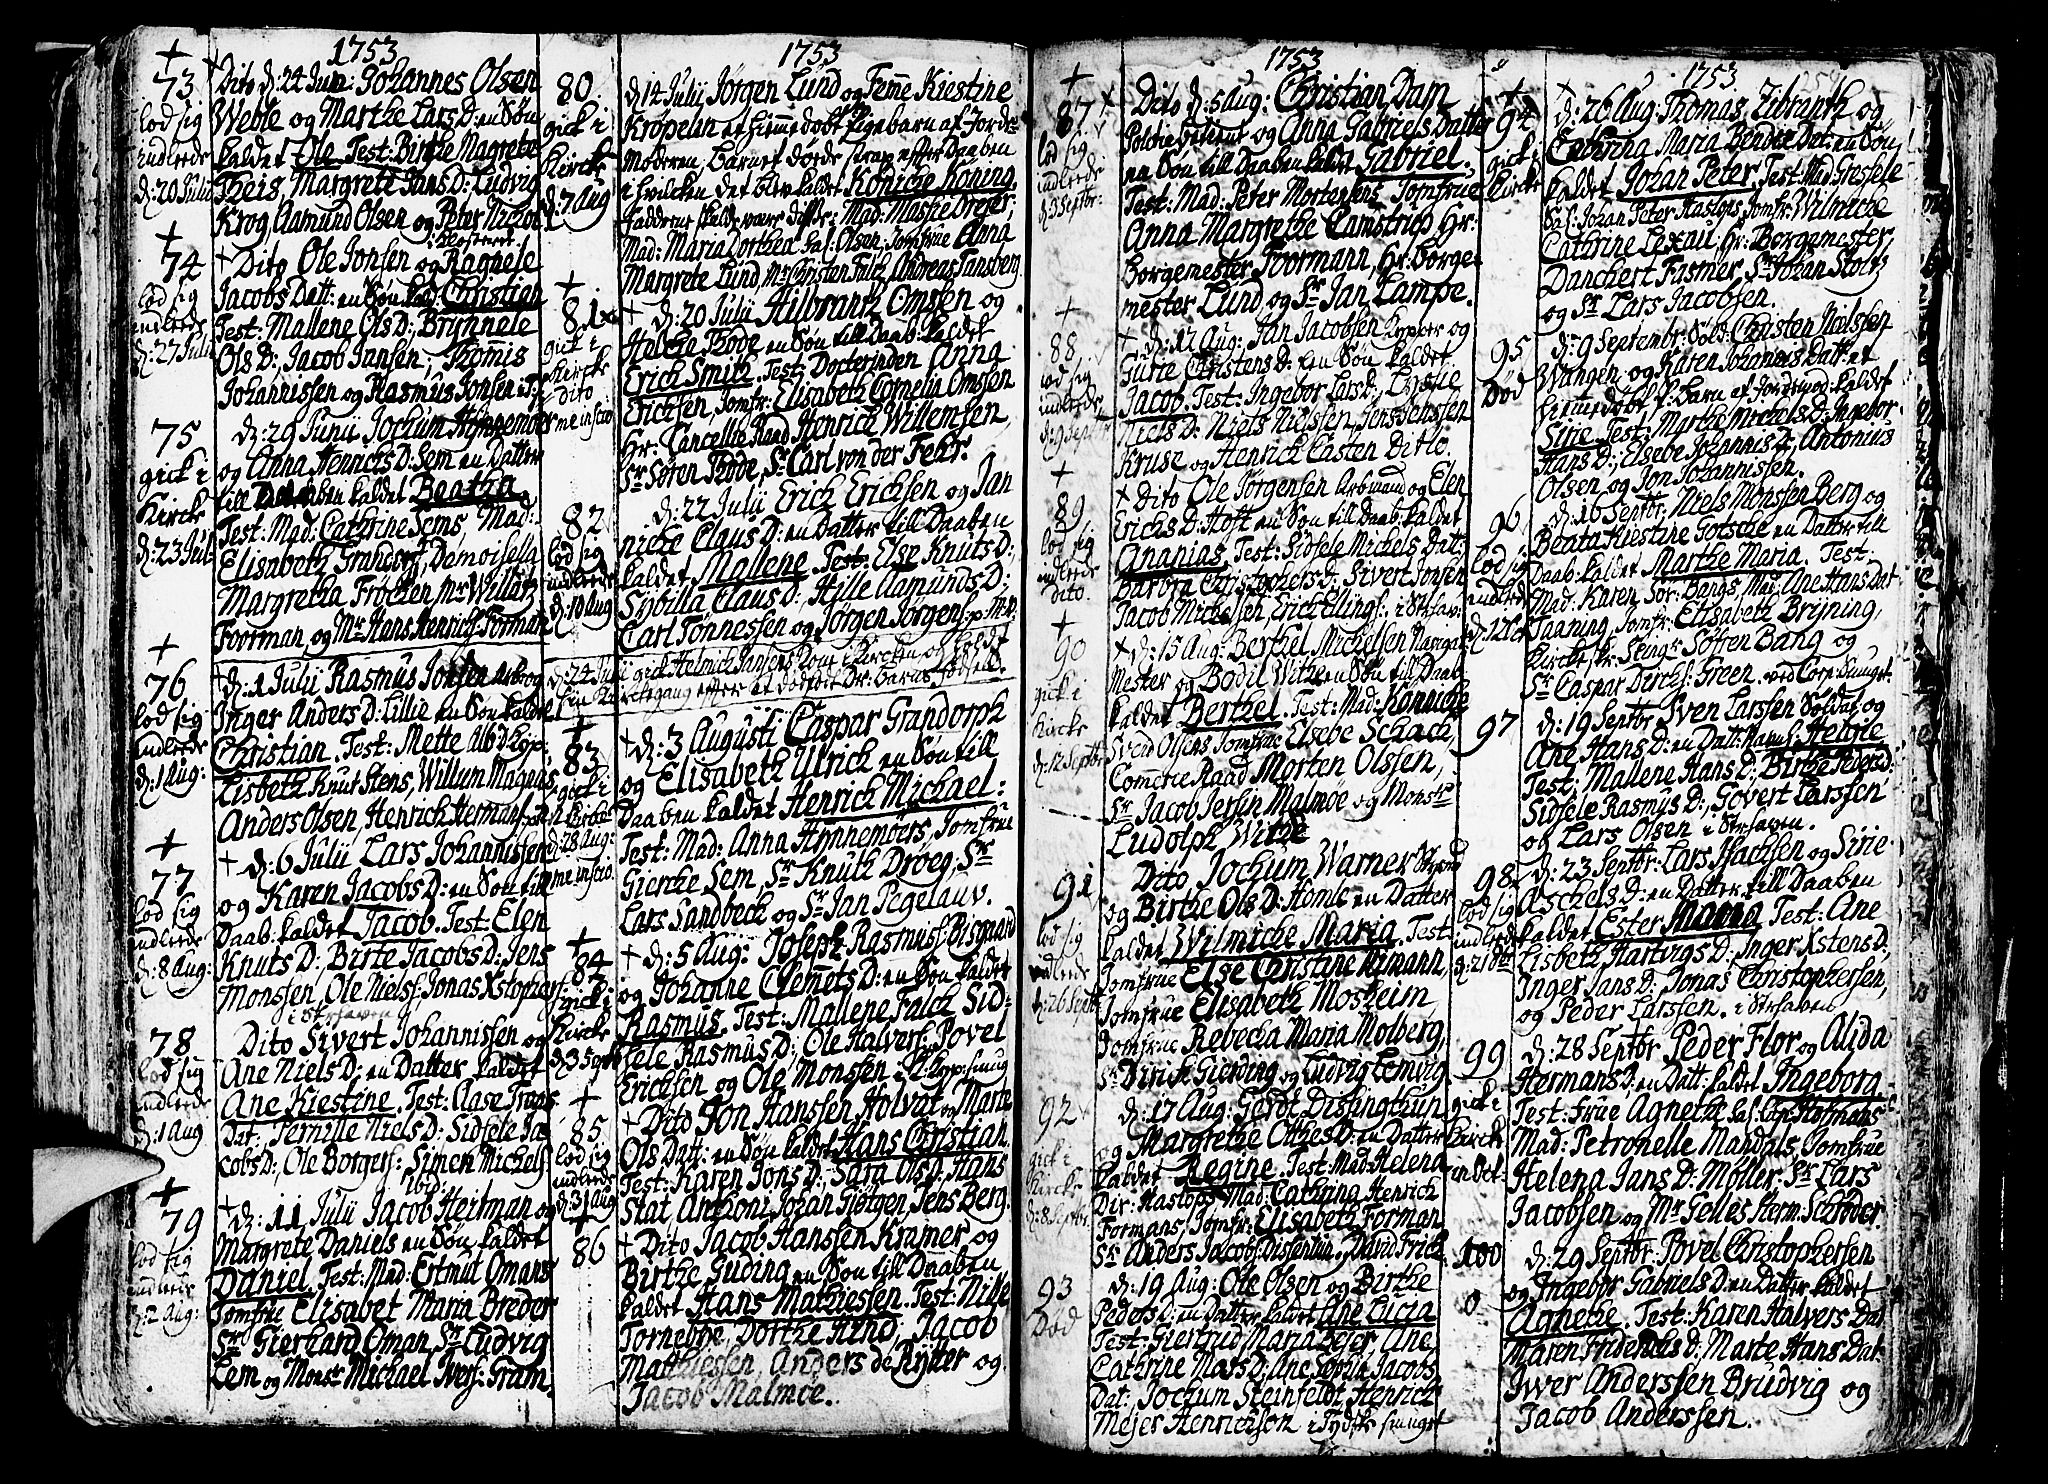 1753
+
73
lod sig
indlede
d: 20 Julii
Dito d: 24 Jun: Johannes Olsen
Weble og Marthe Lars D: en Søn
kaldet Ole. Test: Birthe Magrete
Theis, Margrete Jans D: Ludvig
Krog, Aamund Olsen og Peter Nicol
+
74
lod sig
indlede
d: 27 Julii
i Closteret
Dito Ole Jonsen og Ragnele
Jacobs Datt: en Søn kald: Christian
Test: Mallene Ols D:, Brynnele
Ols D:, Jacob Jansen, Thomis
Johannissen og Rasmus Jonsen
75
gick i
Kircke
d: 23 Jul
d: 29 Junii Jochum Hynnemoer
og Anna Henrics D: Sem en Datter
till Daaben kaldet Beatha
Test: Mad: Cathrine Sems, Mad:
Elisabeth Grandorf, Demoisella
Margretha Frøchen Mr Willatz
Foorman, og Mr Hans Henrich Forman
+
76
lod sig
indlede
d: 1 Aug:
d: 1 Julii Rasmus Jonsen Arb: og
Inger Anders D: Lillie en Søn kaldet
Christian. Test: Mette Alb D:
Lisbeth Knut Stens, Willum Magnus
Anders Olsen, Henrich Hermans:
+
77
lod sig
indlede
d: 8 Aug:
d: 6 Julii Lars Johannissen
og Karen Jacobs D: en Søn till
Daab: kaldet Jacob. Test: Elen
Knuts D: Birte Jacobs D: Jens
Monssen, Ole Niels: Jonas Xstophers:
i Strhaven
78
lod sig
indlede
d: 1 Aug
Dito Sivert Johannissen og
Ane Niels D: en Datter kaldet
Ane Kiestine. Test: Aase Traas
Dat: Pernille Niels D: Sidsele Ja
cobs D:, Ole Borgers: Simen Michels
ibid:
+
79
lod sig
indlede
d: 2 Aug:
d: 11 Julii Jacob Heitman og
Margrete Daniels en Søn kaldet
Daniel. Test: Mad: Ertmut Omans
Jomfrue Elisabet Maria Breder
Sr Gierhard Oman, Sr Ludvig
Lem og Monsr Michael Ivers: Gram.
1753
80
gick i
Kircke
d: 7 Aug
d: 14 Julii Jørgen Lund og Femme Kiestine
Krøpelin et hiemmedøbt Pigebarn af Jorde
Moderen, barnet døde strax efter Daaben
i hvilcken det blev kaldet Könicke Köning.
fadderne skulde være disse: Mad: Maske Dreyer,
Mad: Maria Dorthea Sal: Olsen: Jomfrue Anna
Margrete Lund, Mr Christen Falck, Andreas Tansberg.
+
81
gick i
Kircke
dito
me inscio
d: 20 Julii Hilbrantz Omsen og
Helche Bode en Søn till Daab: kaldet
Erich Smith. Test: Docterinden Anna
Erichsen, Jomfr: Elisabeth Cornelia Omsen
Hr: Cancellie Raad Henrich Willemsen,
Sr Søren Bode, Sr Carl von der Fehr.
82
lod sig
indlede
d: 10 Aug
d: 22 Julii Erich Erichsen og Jan
nicke Claus D: en Datter till Daaben
kaldet Mallene. Test: Else Knuts D:
Sybilla Claus D:, Hille Aamunds D:
Carl Tønnessen og Jørgen Jørgens:
d: 24 Julii gick Helmich Jansens Kone i Kircken og holdt
sin Kirckegang efter et dødfødt Dr: barns fødsell.
+
83
gick i
Kircke
d: 28 Aug:
me inscio.
d: 3 Augusti Caspar Grandorph
og Elisabeth Ulrich en Søn till
Daaben kaldet Henrich Michael:
Test: Mad: Anna Hynnemöers, Jomfrue
Giercke Sem, Sr Knuth Drøeg, Sr
Lars Sandbeck og Sr Jan Pegelauv.
+
84
gick i
Kircke
d: 3 Septr
d: 5 Aug: Joseph Rasmus: Bisgaard
og Johanne Clemmets D: en Søn kaldet
Rasmus. Test: Mallene Falck Sid=
sele Rasmus D:, Ole Halvers: Povel
Erichsen og Ole Monsen i
+
85
lod sig
indlede
d: 31 Aug
Dito Jon Hanssen Holvat og Marte
Ols Datt: en Søn kaldet Hans Christian.
Test: Karen Jons D:, Sara Ols D: Hans
Stat, Anthoni Johan Giørgen, Jens Berg.
+
86
Dito Jacob Hanssen Kramer og
Birthe Guding en Søn till Daaben
kaldet Hans Mathiessen. Test: Nille
Tornebye, Dorthe Kind, Jacob
Matthiessen, Anders de Rytter og
Jacob Malmøe.
1753
+
87
lod sig
indlede
d: 3 Septbr:
Dito d: 5 Aug: Christian Dam
og Anna Gabriels Datter
en Søn till Daaben kaldet Gabriel.
Test: Mad: Peter Mortensens Jomfrue
Anna Margrethe Camstrup Hr:
Borgemester Foormann, Hr: Borge
mester Lund og Sr Jan Lampe.
+
88
lod sig
indlede
d: 9 Septbr
d: 12 Aug: Jan Jacobsen og
Gurte Christens D: een Søn kaldet
Jacob. Test: Ingebor Lars D:, Lydsie
Niels D: Niels Nielsen, Jens Jensen
Kruse og Henrick Casten Ditlo.
+
89
lod sig
indlede
dito.
Dito Ole Jørgensen Arbmand og Elen
Erichs D: Hoft en Søn till Daab: kaldet
Ananias. Test: Sidsele Michels Datt:
Barbra Christophers D:, Sivert Jonsen
Jacob Michelsen, Erich Ellings: i Strhav:
+
90
gick i
Kircke
d: 12 Septbr
d: 15 Aug: Berthel Michelsen Navigat
Mester og Bodil Withe en Søn till Daab:
kaldet Berthel. Test: Mad: Kannicke
Svend Olsens Jomfrue Elsebe Schach,
Comercie Raad Morten Olssen,
Sr Jacob Jersin Malmøe og Monsr
Ludolph Withe
91
lod sig
indlede
d: 26 Septbr
Dito Jochum Warner
og Birthe Ols D: Homle en Datter
kaldet Wilmiche Maria. Test:
Jomfrue Else Christine Nimann,
Jomfrue Elisabeth Mosheim,
Jomfrue Rebecka Maria Molberg,
Sr Dirich Gierding og Ludvig Lemvig
92
gick i
Kircke
d: 8 Septbr
d: 17 Aug: Gerdt Dissingtuun
og Margrethe Otthes D: en Datter
kaldet Regine. Test: Mad: Helena
Dir: Hastops Mad: Cathrina Henrich
Formans, Jomfr: Elisabeth Forman
Sr Anders Jacobs: Dissentun, David Frich.
93
Død
d: 19 Aug: Ole Olsen og Birthe
Peders D: en Datter kaldet Ane Lucia
Test: Giertrud Maria Bejer, Ane
Cathrine Mats D: Ane Sophia Jacobs
Dat: Jochum Steinfeldt, Henrich
Mejer Henrichson i Tydske smuget
1753
+
94
gick i
Kircke
d: 26 Aug: Thomas Zibranth og
Cathrina Maria Bendix Dat: en Søn
kaldet Johan Peter. Test: Mad: Gessele
Sal: Johan Peter Hastops, Jomfr: Wilmicke
Cathrine Lexau, Hr: Borgemester
Danchert Fasmer, Sr Johan Stoltz
og Sr Lars Jacobsen.
95
Død
d: 9 Septembr: Sold: Christen Nielssen
Wangen og Karen Johannes Datt: et
hiemmedøbt Barn af Jordemod: kaldet
Sirie. Test: Marthe Michels D: Ingebor
Hans D:, Elsebe Johannis D:, Antonius
Olsen og Jon Johannissen.
96
lod sig
indlede
d: 12 Oct
d: 16 Septbr: Niels Monssen Berg og
Beata Kiestine Gotsche en Datter till
Daab: kaldet Marthe Maria. Test:
Mad: Karen Sør: Bangs, Mad: Ane Hans Dat
Taaning, Jomfr: Elisabeth Bryning,
Kircke Sengr Søffren Bang og
Sr Caspar Dirchs: Green. ved Corp: Smuget
97
d: 19 Septbr Sven Larssen Soldat og
Ane Hans D: en Datt: Navnl: Helgie
Test: Mallene Hans D:, Birthe Peders D:
Sidsele Rasmus D:, Govert Larssen
og Lars Olsen i Strhaven.
98
lod sig
indlede
d: 21 Octr
d: 23 Septbr: Lars Isachsen og Sirie
Aschels D: en Datter till Daaben
kaldet Ester Maria. Test: Ane
Lisbeth Hartvigs D:, Inger Xstens D:
Inger Jans D:, Jonas Christophersen,
og Peder Larssen. i Strhaven
99
gick i
Kircke
d: 28 Septbr Peder Flor og Alida
Hermans D: en Datt: kaldet Ingeborg.
Test: Frue Agnethe Sal: Cap: Hofmans
Mad: Petronelle Mandals, Jomfrue
Helena Jans D: Møller, Sr Lars
Jacobsen og Mr Gelles Herm: Schrøder.
100
0
d: 29 Septbr: Povel Christophersen
og Ingebor Gabriels D: en Datter kaldet
Agnethe. Test: Karen Halvers Dat
Maren Friderichs D: Marte Hans Dat:
Iwer Anderssen Brudvig og
Jacob Anderssen.